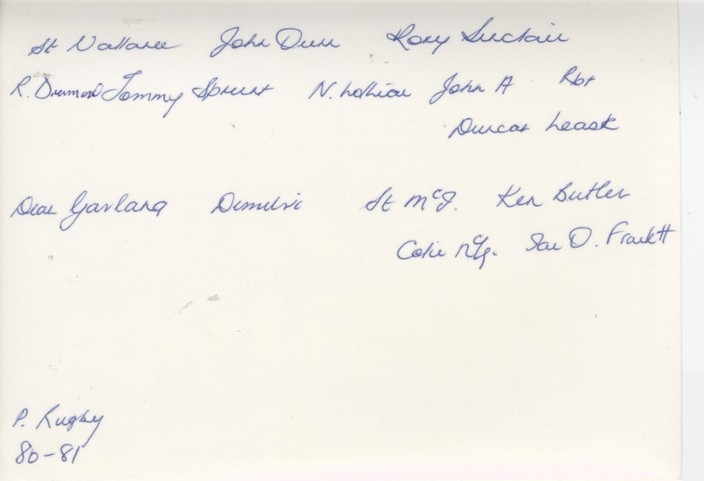 St Wallace John Dunn Rory Sinclair
R. Drummond Tommy Sprunt N. Lothian John A Rbt
Duncan Leask
Dean Garland Dimitri St McG. Ken Butler
Colin Ian D.
P. Rugby
80-81